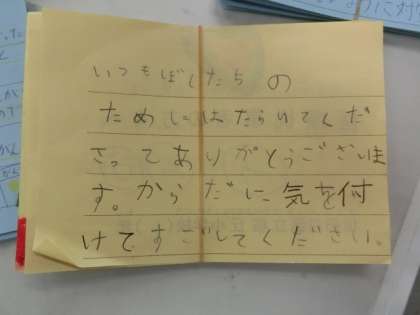 いつもぼくたちの
ためにはたらいてくだ
さってありがとうございま
す。からだに気を付
けてすごしてください。